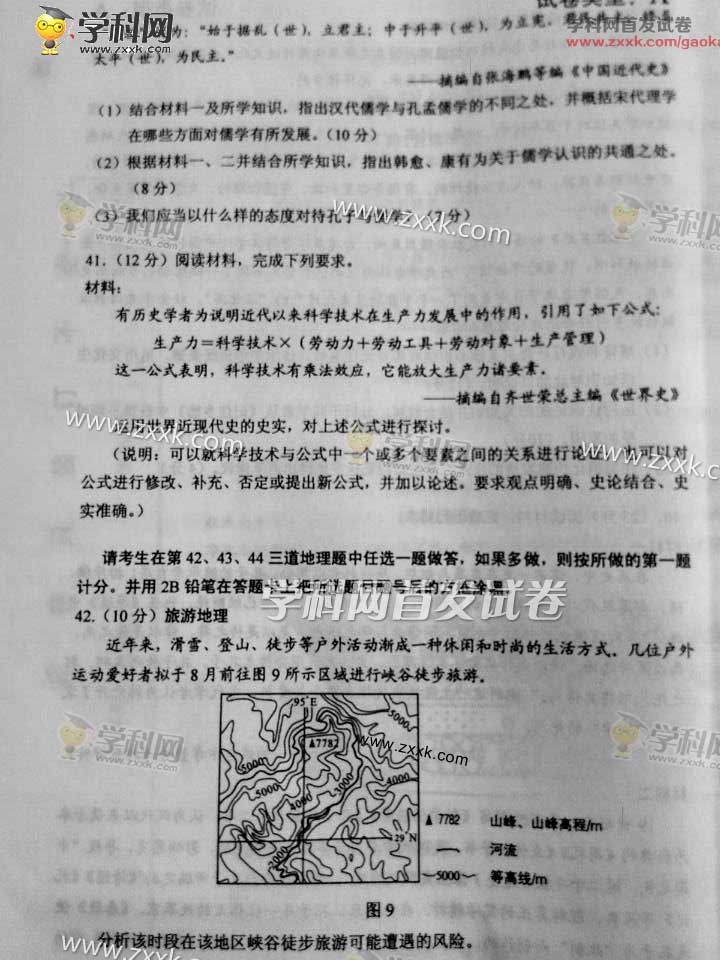 学科网
www.zxxk.com
http://www.zxxk.com/gaoka
为:“始于据乱(世),立君主;中于升平(世),为立宪,
太平(世),为民主。”
——摘编自张海鹏等编《中国近代史》
(1)结合材料一及所学知识,指出汉代儒学与孔孟儒学的不同之处,并概括宋代理学
在哪些方面对儒学有所发展。(10分)
(2)根据材料一、二并结合所学知识,指出韩愈、康有为关于儒学认识的共通之处。
(8分)
(3)我们应当以什么样的态度对待孔子与儒学?(7分)
41.(12分)阅读材料,完成下列要求。
材料:
有历史学者为说明近代以来科学技术在生产力发展中的作用,引用了如下公式:
生产力=科学技术×(劳动力+劳动工具+劳动对象+生产管理)
这一公式表明,科学技术有乘法效应,它能放大生产力诸要素。
——摘编自齐世荣总主编《世界史》
运用世界近现代史的史实,对上述公式进行探讨。
(说明:可以就科学技术与公式中一个或多个要素之间的关系进行论证,也可以对
公式进行修改、补充、否定或提出新公式,并加以论述。要求观点明确、史论结合、史
实准确。)
请考生在第42、43、44三道地理题中任选一题做答,如果多做,则按所做的第一题
计分。并用2B铅笔在答题卡上把所选题目题号后的方框涂黑。
学科网首发试卷
42.(10分)旅游地理
近年来,滑雪、登山、徒步等户外活动渐成一种休闲和时尚的生活方式。几位户外
运动爱好者拟于8月前往图9所示区域进行峡谷徒步旅游。
95°E
5000
▲7782
5000
4000
3000
4000
2000
29°N
▲ 7782 山峰、山峰高程/m
河流
5000 等高线/m
图9
分析该时段在该地区峡谷徒步旅游可能遭遇的风险。